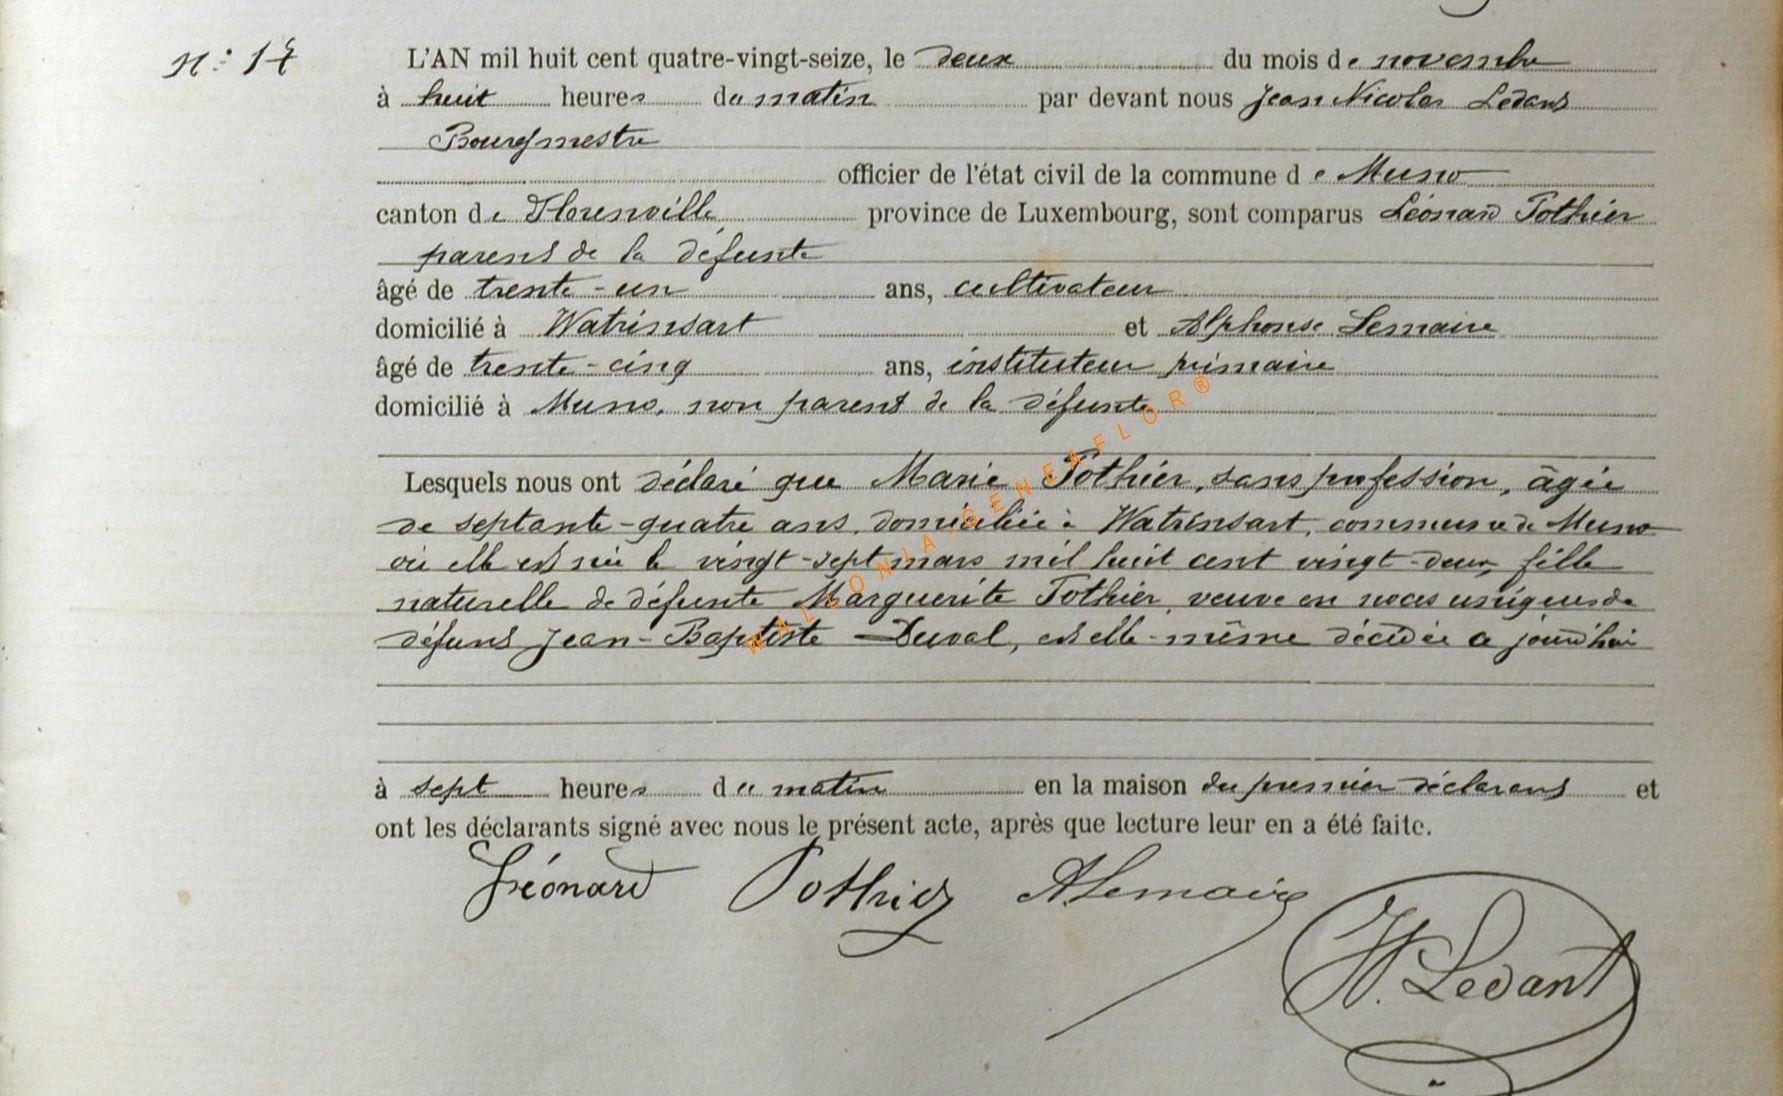 N° 17
L'AN mil huit cent quatre-vingt-seize, le deux du mois de novembre
à huit heures du matin par devant nous Jean Nicolas Ledant
Bourgmestre
officier de l'état civil de la commune de Muno
canton de Florenville province de Luxembourg, sont comparus Léonard Pothier
parent de la défunte
âgé de trente-un ans, cultivateur
domicilié à Watrinsart et Alphonse Lemaire
âgé de trente-cinq ans, instituteur primaire
domicilié à Muno, non parent de la défunte
Lesquels nous ont déclaré que Marie Pothier, sans profession, âgée
de septante-quatre ans, domiciliée à Watrinsart, commune de Muno
où elle est née le vingt-sept mars mil huit cent vingt-deux, fille
naturelle de défunte Marguerite Pothier, veuve en noces uniques de
défunt Jean-Baptiste Duval, est elle-même décédée ce jourd'hui
à sept heures du matin en la maison du premier déclarant et
ont les déclarants signé avec nous le présent acte, après que lecture leur en a été faite.
Léonard Pothier ALemaire
N. Ledant
WALLONIA-GENEAFLOR®